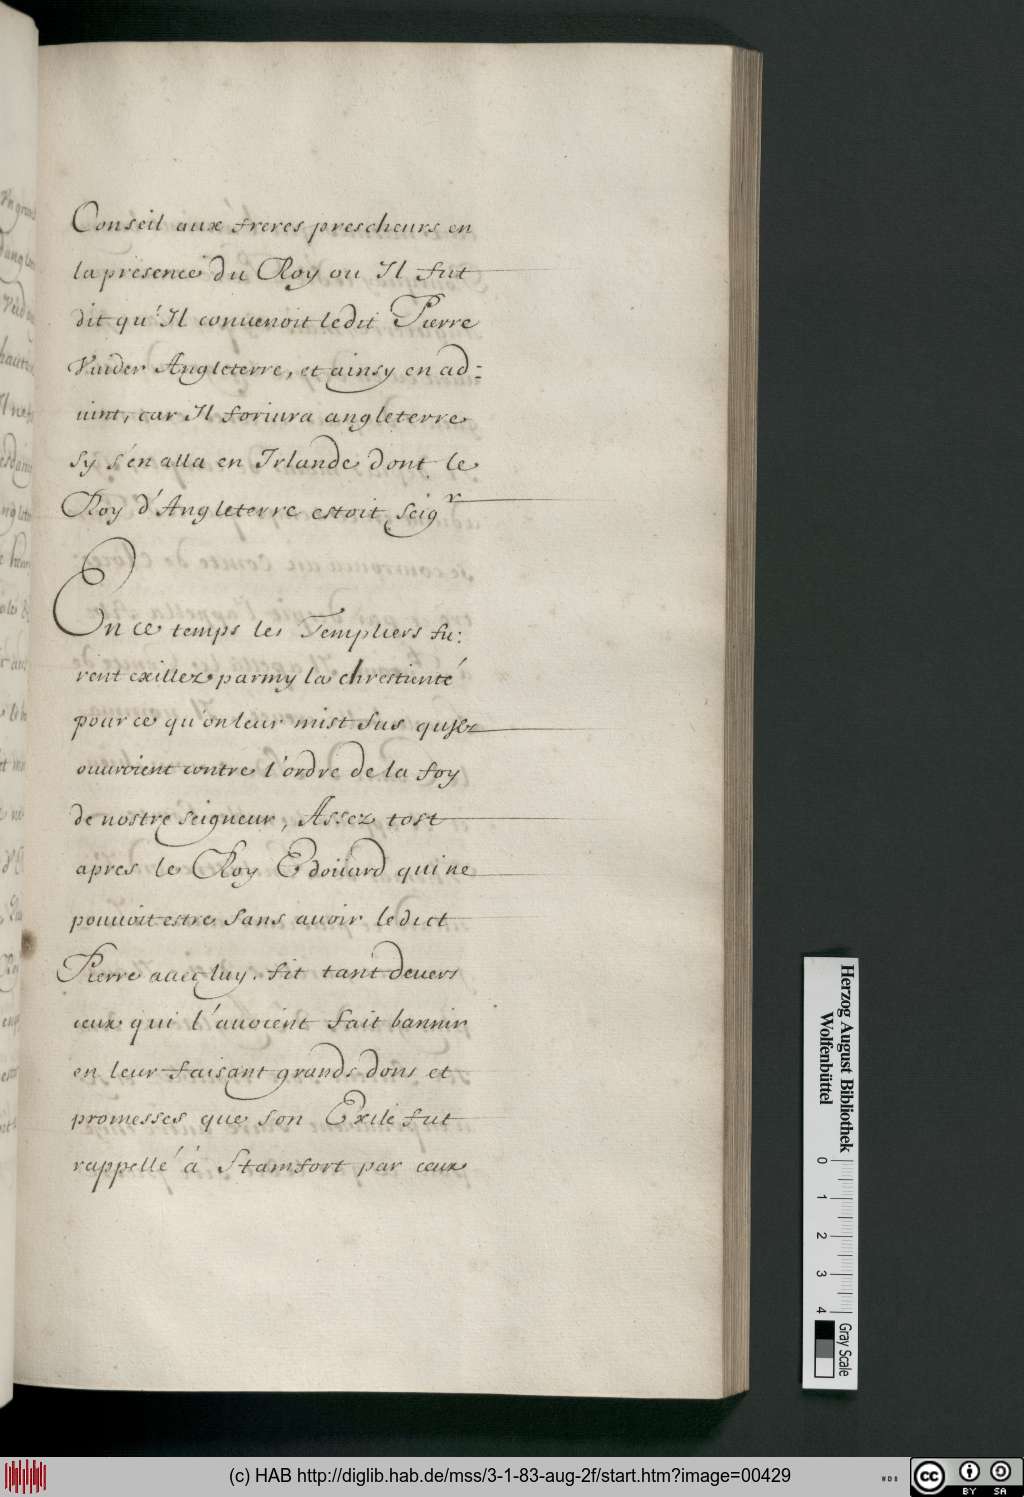 Conseil aux freres prescheurs en
la presence du Roy ou Il fut
dit qu'Il conuenoit ledit Pierre
Vuider Angleterre, et ainsy en ad:
uint, car Il foriura angleterre
sy s'en alla en Irlande dont le
Roy d'Angleterre estoit seigr
En ce temps les Templiers fu:
rent exillez parmy la chrestienté
pour ce qu'on leur mist sus qu'ilz
ouuroient contre l'ordre de la foy
de nostre seigneur, Assez tost
apres le Roy Edoüard qui ne
pouuoit estre sans auoir ledict
Pierre auec luy. fit tant deuers
ceux qui l'auoient fait bannir
en leur faisant grands dons et
promesses que son Exile fut
rappellé à Stamfort par ceux
Herzog August Bibliothek
Wolfenbüttel
0 1 2 3 4
Gray Scale
(c) HAB http://diglib.hab.de/mss/3-1-83-aug-2f/start.htm?image=00429
WDB
cc BY SA